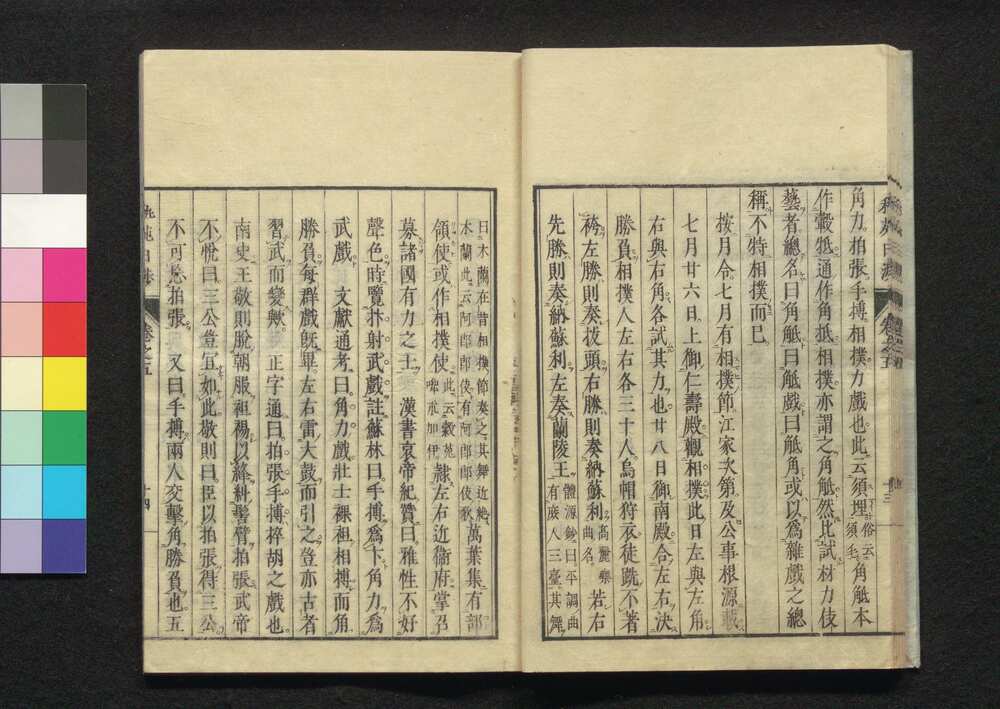 角力拍張手搏相撲力戲也此云須埋俗云須毛角觝本
作觳牴通作角抵相撲亦謂之角觝然比試材力伎
藝者總名曰角觝曰觝戲曰觝角或以爲雜戲之總
稱不特相撲而已
按月令七月有相撲節江家次第及公事根源載
七月廿六日上御仁壽殿觀相撲此日左與左角
右與右角各試其力也廿八日御南殿合左右決
勝負相撲人左右各三十人烏帽狩衣徒跣不著
袴左勝則奏拔頭右勝則奏納蘇利高麗樂曲名若右
先勝則奏納蘇利左奏蘭陵王體源鈔曰平調曲有庶人三臺其舞
日木蘭在昔相撲節奏之其舞近絶木蘭此云阿郎郎伎有阿郎郎伎歌萬葉集有部
領使或作相撲使隷左右近衞府掌召
募諸國有力之士 漢書哀帝紀贊曰雅性不好
聲色時覽抃射武戲註蘇林曰手搏爲卞角力爲
武戲 文獻通考曰角力戲壯士裸袒相搏而角
勝負每群戲既畢左右雷大鼓而引之豈亦古者
習武而變歟 正字通曰拍張手搏捽胡之戲也
南史王敬則脫朝服袒裼以絳糾髻臂拍張武帝
不悅曰三公豈宜如此敬則曰臣以拍張得三公
不可忘拍張 又曰手搏兩人交擊角勝負也五
卷之五
十四